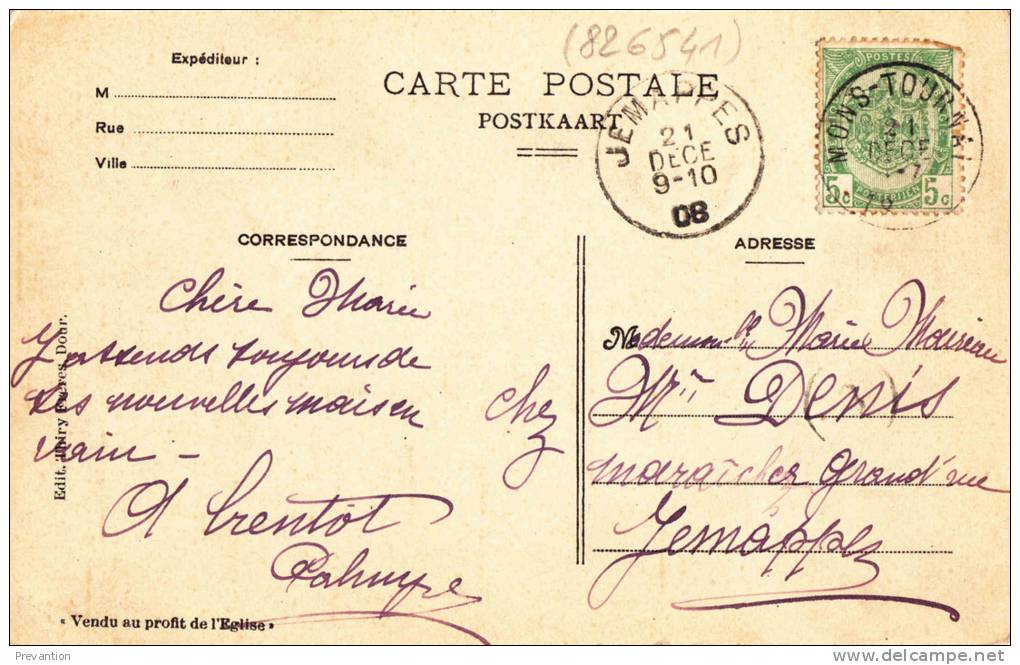 (826541)
Expéditeur :
M
Rue
Ville
CARTE POSTALE
POSTKAART
JEMAPPES
21
DECE
9-10
08
POSTES
MONS-TOURNAI
21
DECE
5c 5c
POSTERIJEN
CORRESPONDANCE
ADRESSE
Chère Marie
J'attends toujours de
tes nouvelles mais en
vain -
A bientôt
chez
Mademoiselle Marie
Mr Denis
maraîcher Grand'rue
Jemappes
Edit. Thiry Frères, Dour.
« Vendu au profit de l'Eglise »
Prevantion
delcampe.net